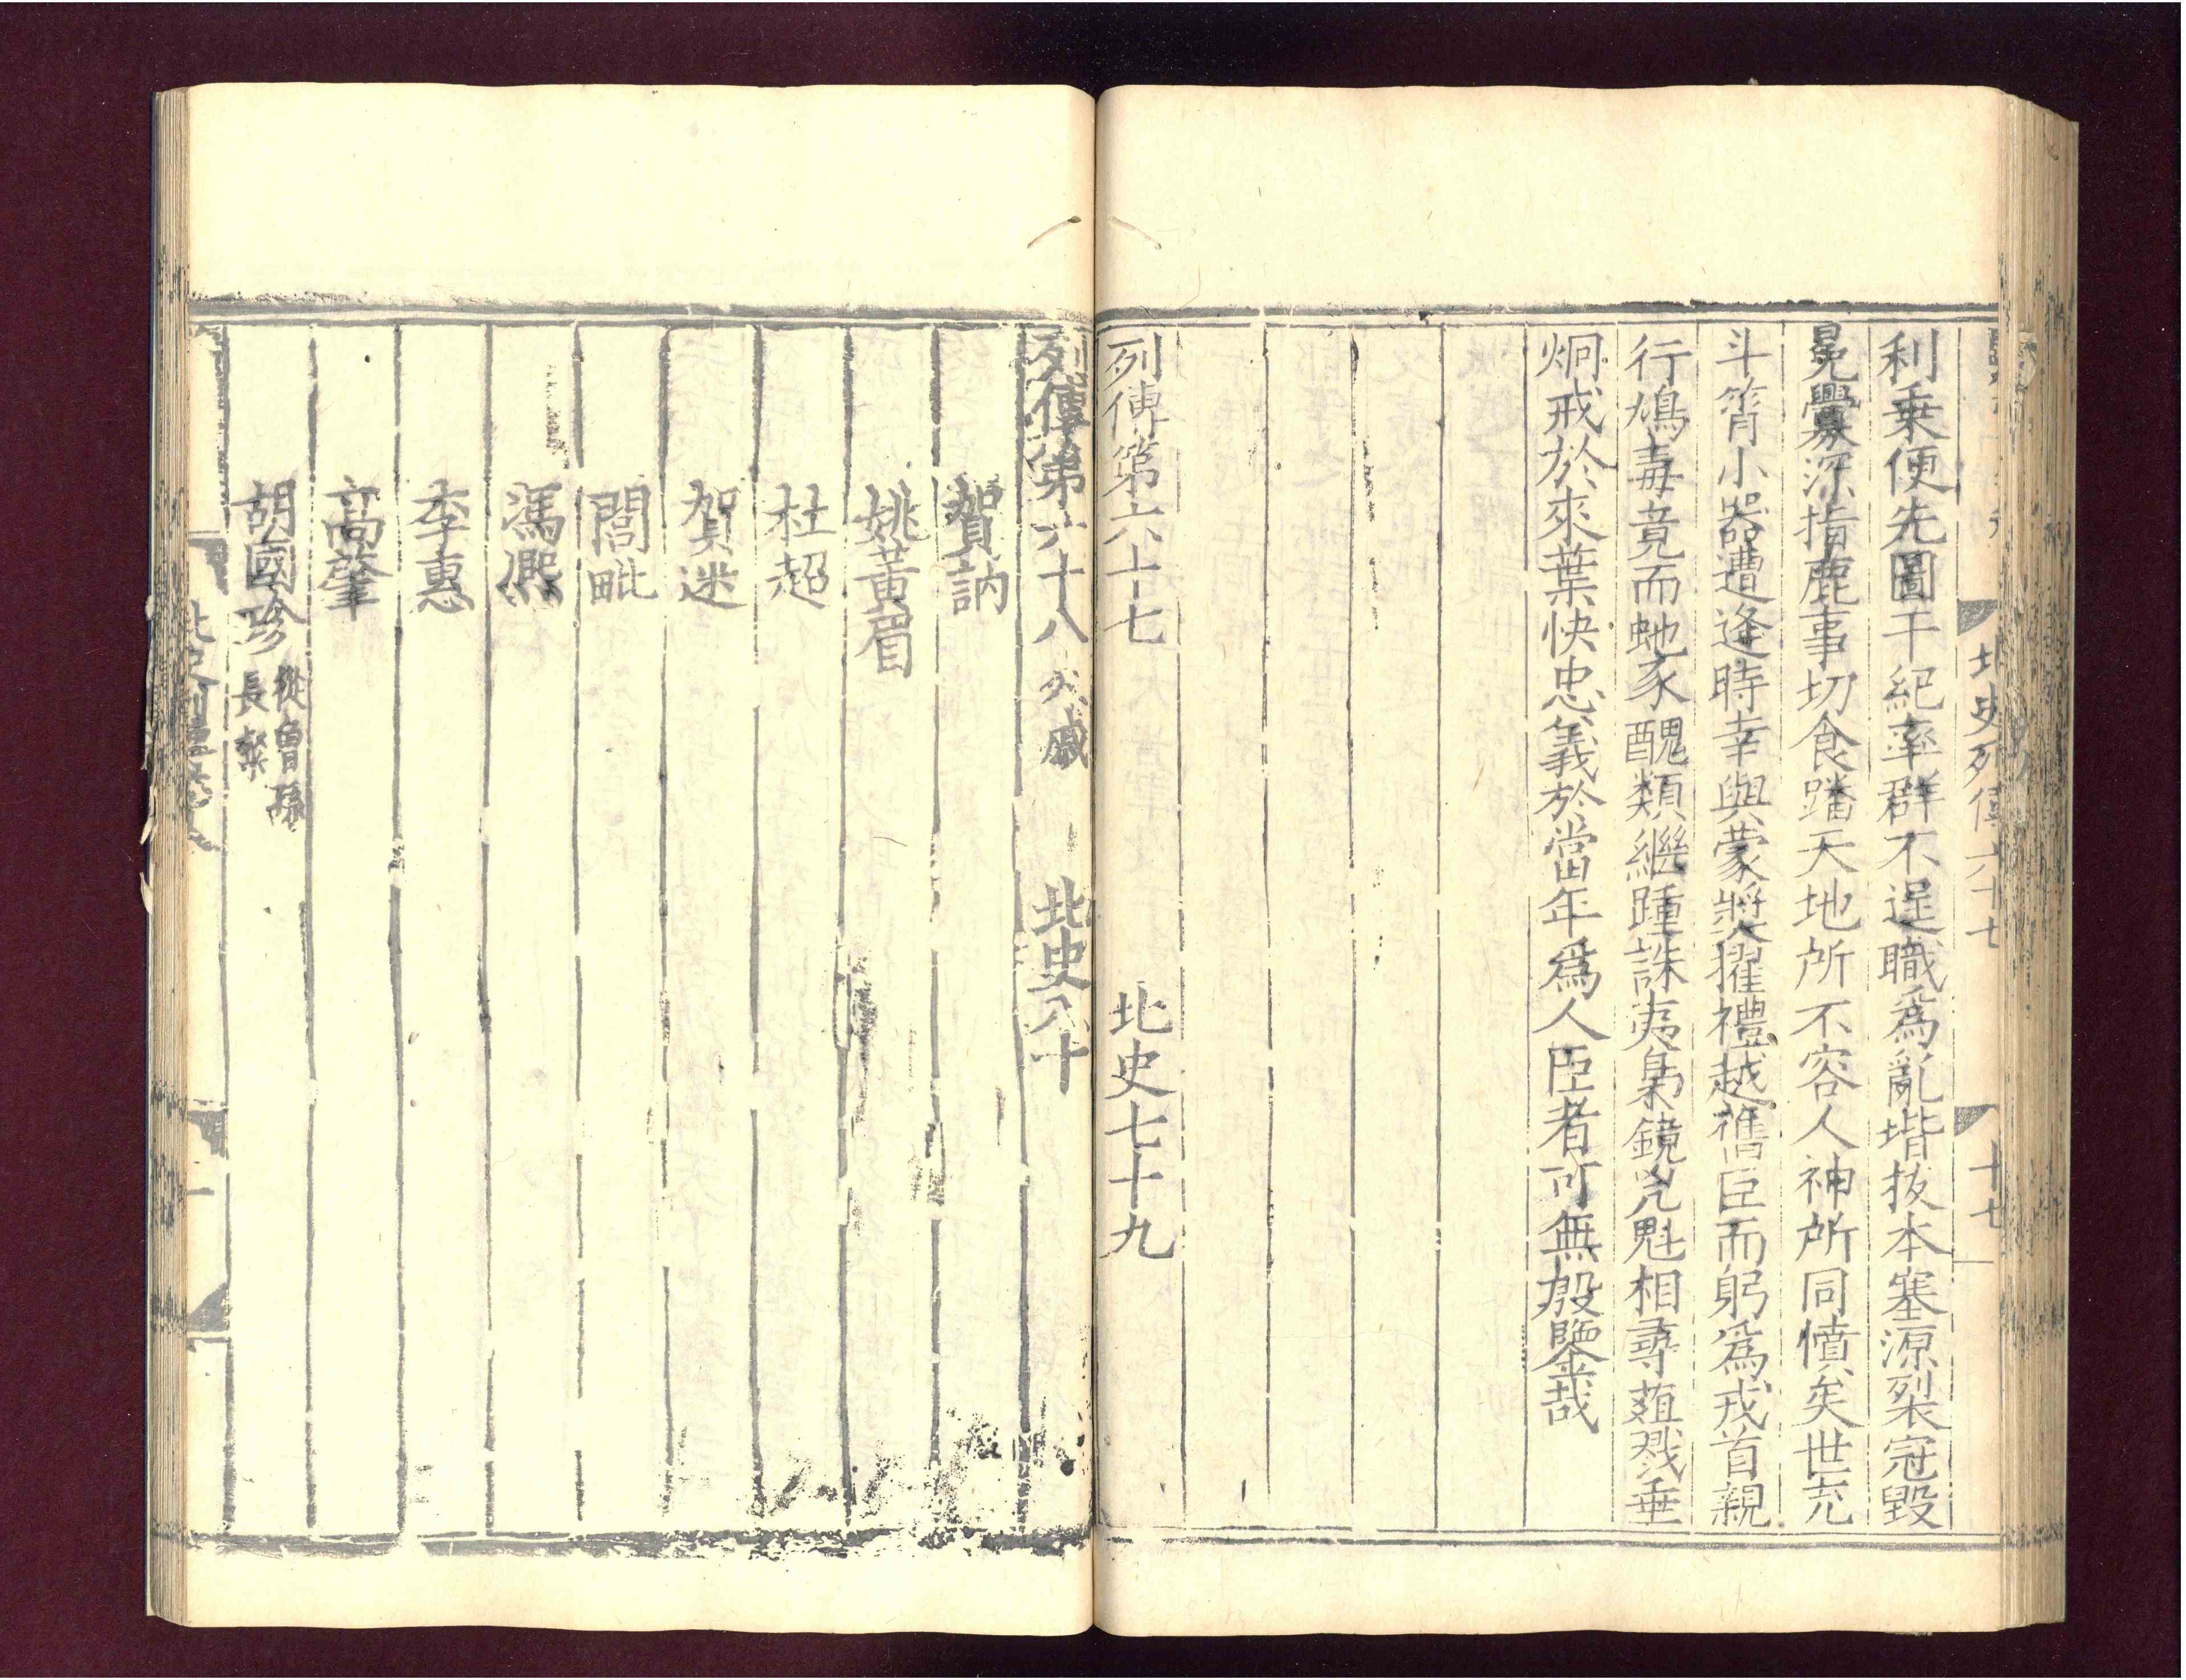 北史列傳六十七
十七
利乗便先圖干紀率群不逞職爲亂堦拔本塞源裂冠毀
冕釁深指鹿事切食蹯天地所不容人神所同憤矣世充
斗筲小器遭逢時幸與蒙獎擢禮越舊臣而躬爲戎首親
行鴆毒竟而虵豕醜類繼踵誅夷梟鏡兇魁相尋葅戮垂
炯戒於來葉快忠義於當年爲人臣者可無殷鑒哉
列傳第六十七 北史七十九
列傳第六十八 外戚 北史八十
賀訥
姚黃眉
杜超
賀迷
閭毗
馮熈
李惠
高肇
胡國珍 從曾孫
長粲
北史列傳
一